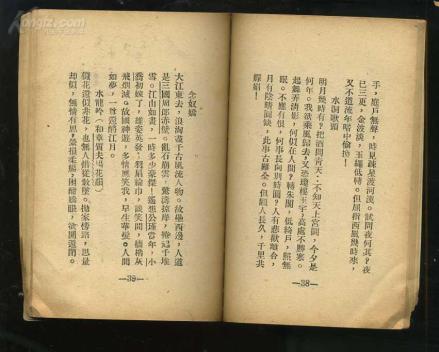 kongfz.com
手，庭戶無聲，時見疎星渡河漢。試問夜何其？夜
已三更，金波淡，玉繩低轉。但屈指西風幾時來，
又不道流年暗中偷換！
水調歌頭
明月幾時有？把酒問青天：不知天上宮闕，今夕是
何年。我欲乘風歸去，又恐瓊樓玉宇，高處不勝寒。
起舞弄清影，何似在人間？轉朱閣，低綺戶，照無
眠。不應有恨，何事長向別時圓？人有悲歡離合，
月有陰晴圓缺，此事古難全。但願人長久，千里共
嬋娟！
—38—
念奴嬌
大江東去，浪淘盡千古風流人物。故壘西邊，人道
是三國周郎赤壁。亂石崩雲，驚濤掠岸，捲起千堆
雪。江山如畫，一時多少豪傑！遙想公瑾當年，小
喬初嫁了，雄姿英發；羽扇綸巾，談笑間，檣櫓灰
飛煙滅。故國神遊，多情應笑我，早生華髮。人間
如夢，一尊還酹江月。
水龍吟（和章質夫楊花韻）
似花還似非花，也無人惜從教墜。拋家傍路，思量
却似，無情有思。縈損柔腸，困酣嬌眼，欲開還閉。
—39—